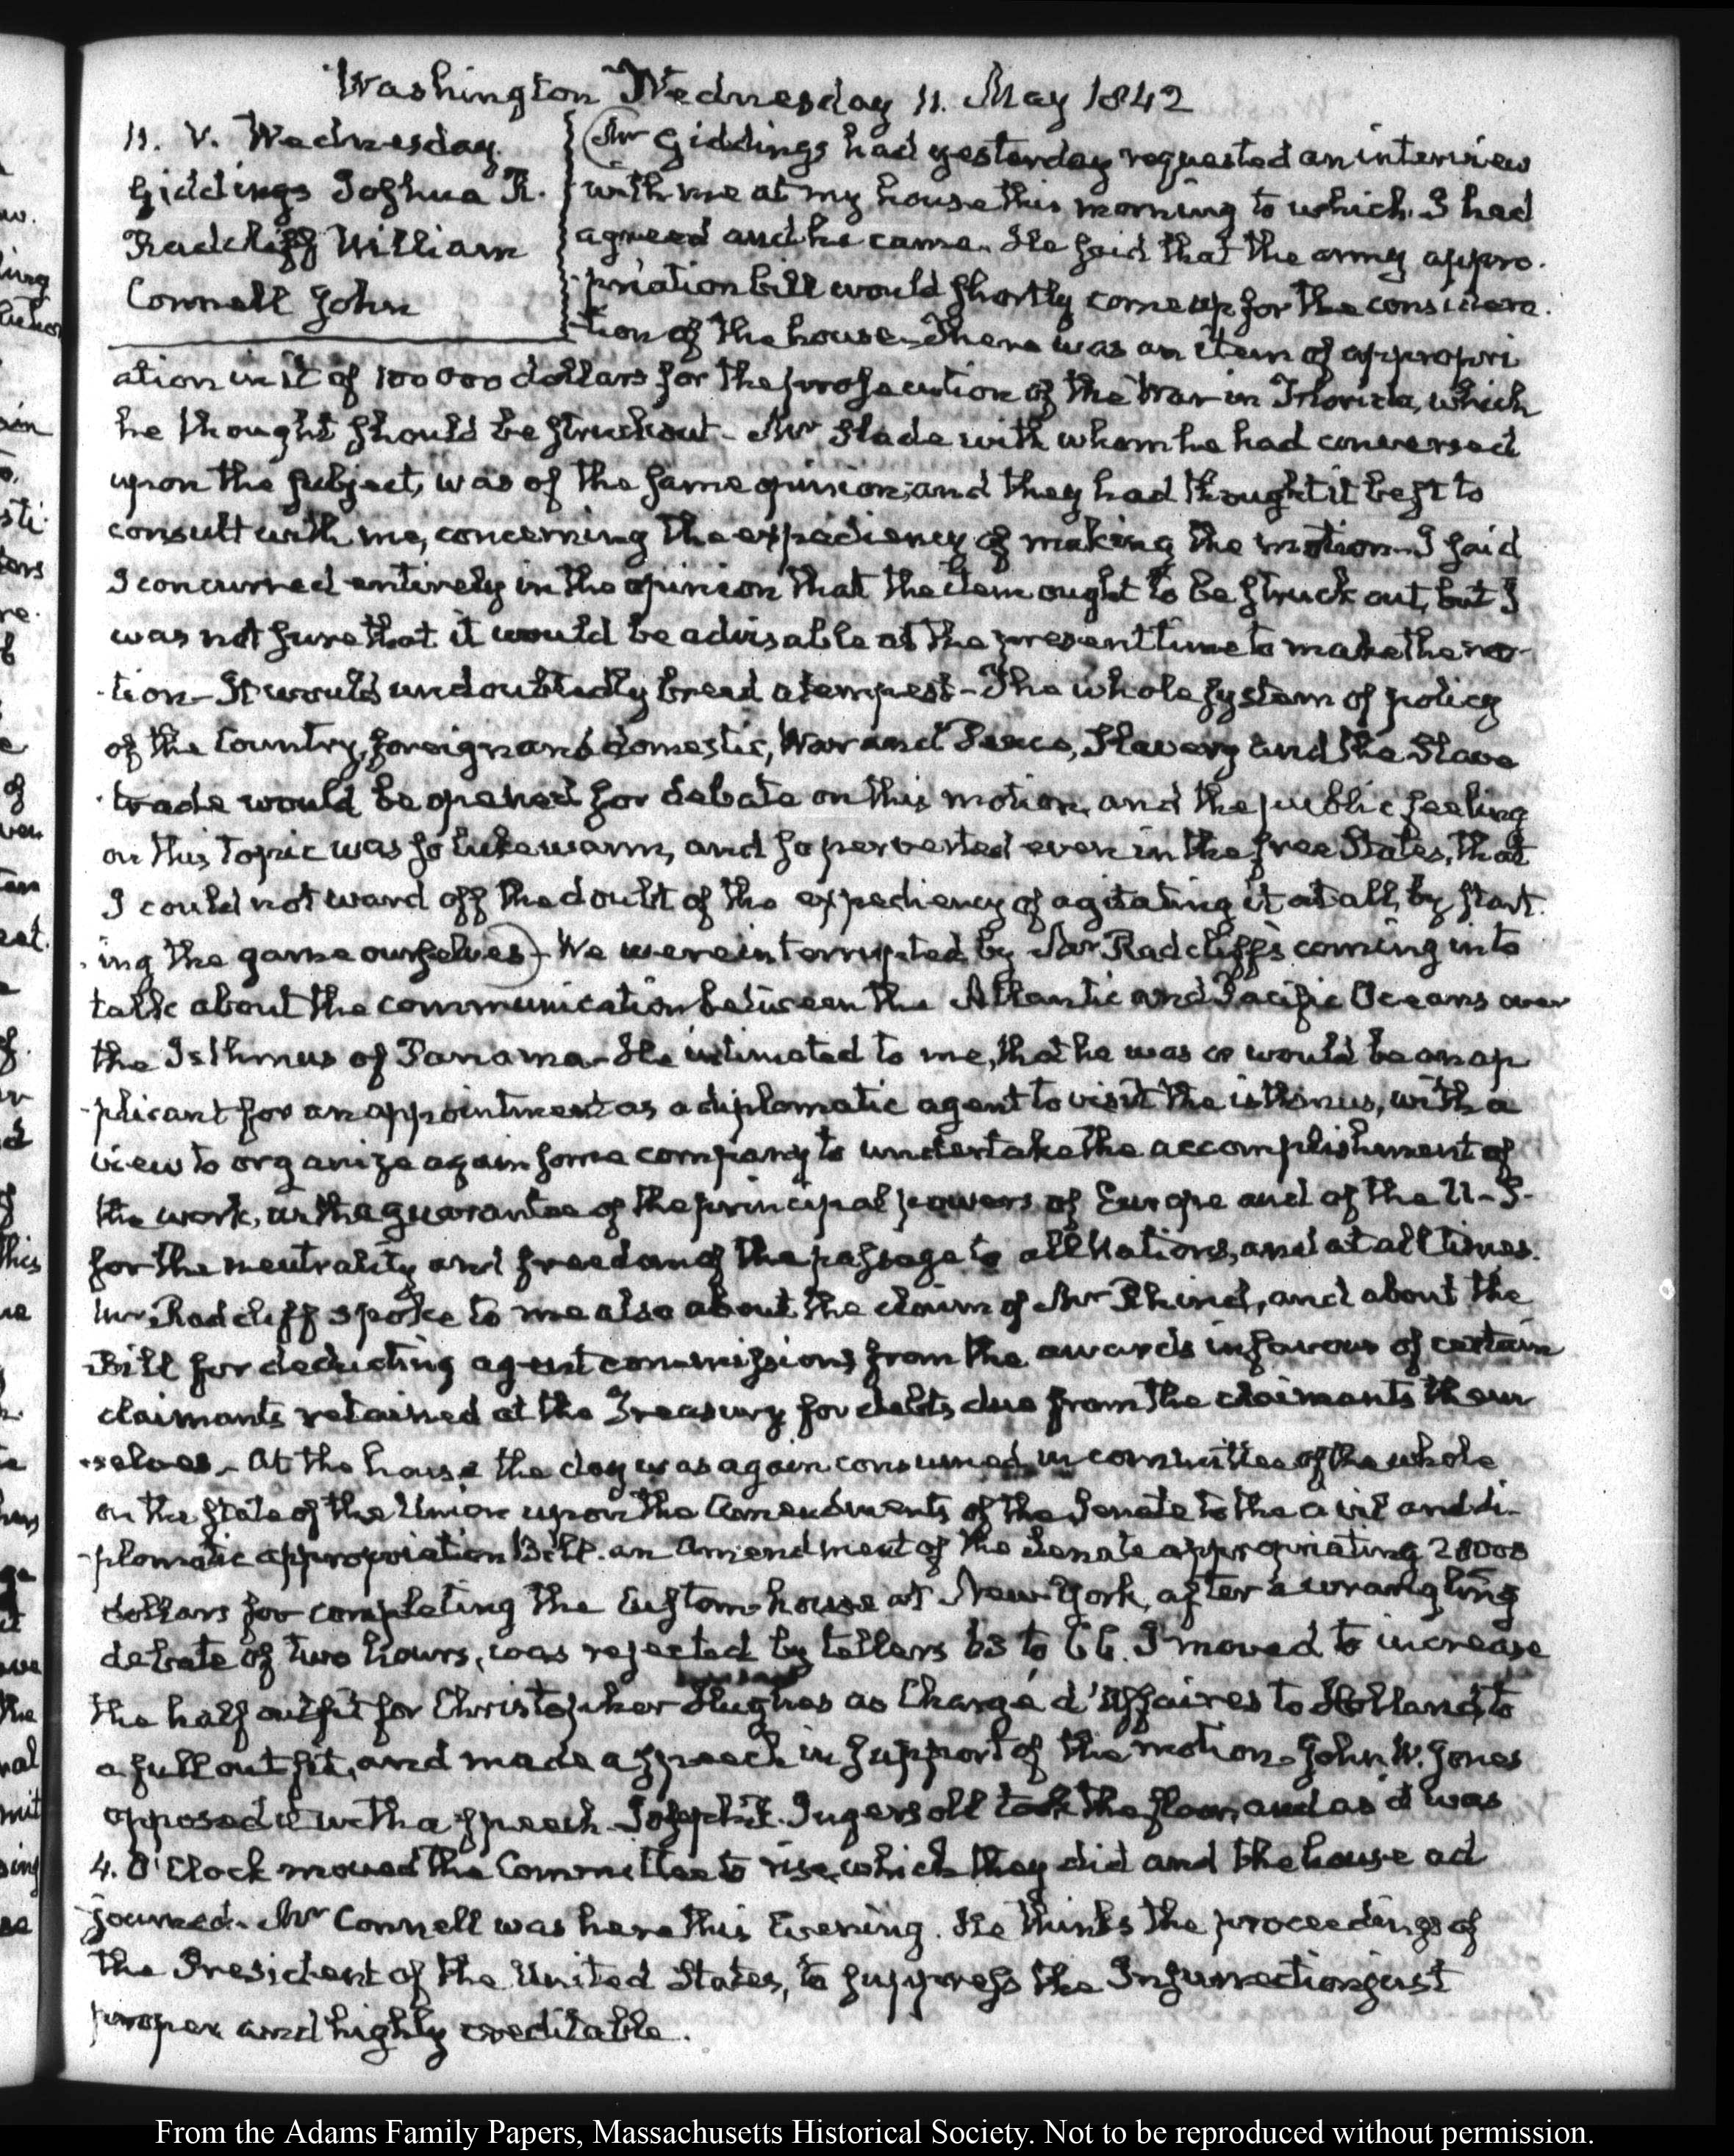 Washington Wednesday 11. May 1842
11. V. Wednesday.
Giddings Joshua R.
Radcliff William
Connell John
(Mr Giddings had yesterday requested an interview
with me at my house this morning to which I had
agreed and he came. He said that the army appro-
-priation bill would shortly come up for the considera-
-tion of the house. There was an item of appropri
ation in it of 100 000 dollars for the prosecution of the War in Florida, which
he thought should be struck out. Mr Slade with whom he had conversed
upon the subject, was of the same opinion, and they had thought it best to
consult with me, concerning the expediency of making the motion. I said
I concurred entirely in the opinion that the item ought to be struck out, but I
was not sure that it would be advisable at the present time to make the mo-
-tion- It would undoubtedly breed a tempest- The whole system of policy
of the Country, foreign and domestic, War and Peace, Slavery and the Slave
trade would be opened for debate on this motion, and the public feeling
on this Topic was so lukewarm, and so perverted even in the free States, that
I could not ward off the doubt of the expediency of agitating it at all, by start-
-ing the game ourselves)- We were interrupted by Mr Radcliff's coming in to
talk about the communication between the Atlantic and Pacific Oceans over
the Isthmus of Panama- He intimated to me, that he was or would be an ap
-plicant for an appointment as a diplomatic agent to visit the isthmus, with a
view to organize again some company to undertake the accomplishment of
the work, the guarantee of the principal powers of Europe and of the U-S-
for the neutrality and freedom of the passage to all Nations, and at all times.
Mr Radcliff spoke to me also about the claim of Mr Rhind, and about the
Bill for deducting agent commissions from the awards in favour of certain
claimants retained at the Treasury for debts due from the claimants them
-selves. At the house the day was again consumed in committee of the whole
on the State of the Union upon the Amendments of the Senate to the civil and di-
-plomatic appropriation Bill. an Amendment of the Senate appropriating 28000
dollars for completing the Custom-house at New-York, after a wrangling
debate of two hours, was rejected by tellers 63 to 66. I moved to increase
the half outfit for Christopher Hughes as Chargé d'Affaires to Holland, to
a full outfit, and made a speech in support of the motion. John W. Jones
opposed it with a speech. Joseph R. Ingersoll took the floor, and as it was
4. O'Clock moved the Committee to rise, which they did and the house ad
journed. Mr Connell was here this Evening. He thinks the proceedings of
the President of the United States, to suppress the Insurrection just
proper and highly creditable.
From the Adams Family Papers, Massachusetts Historical Society. Not to be reproduced without permission.